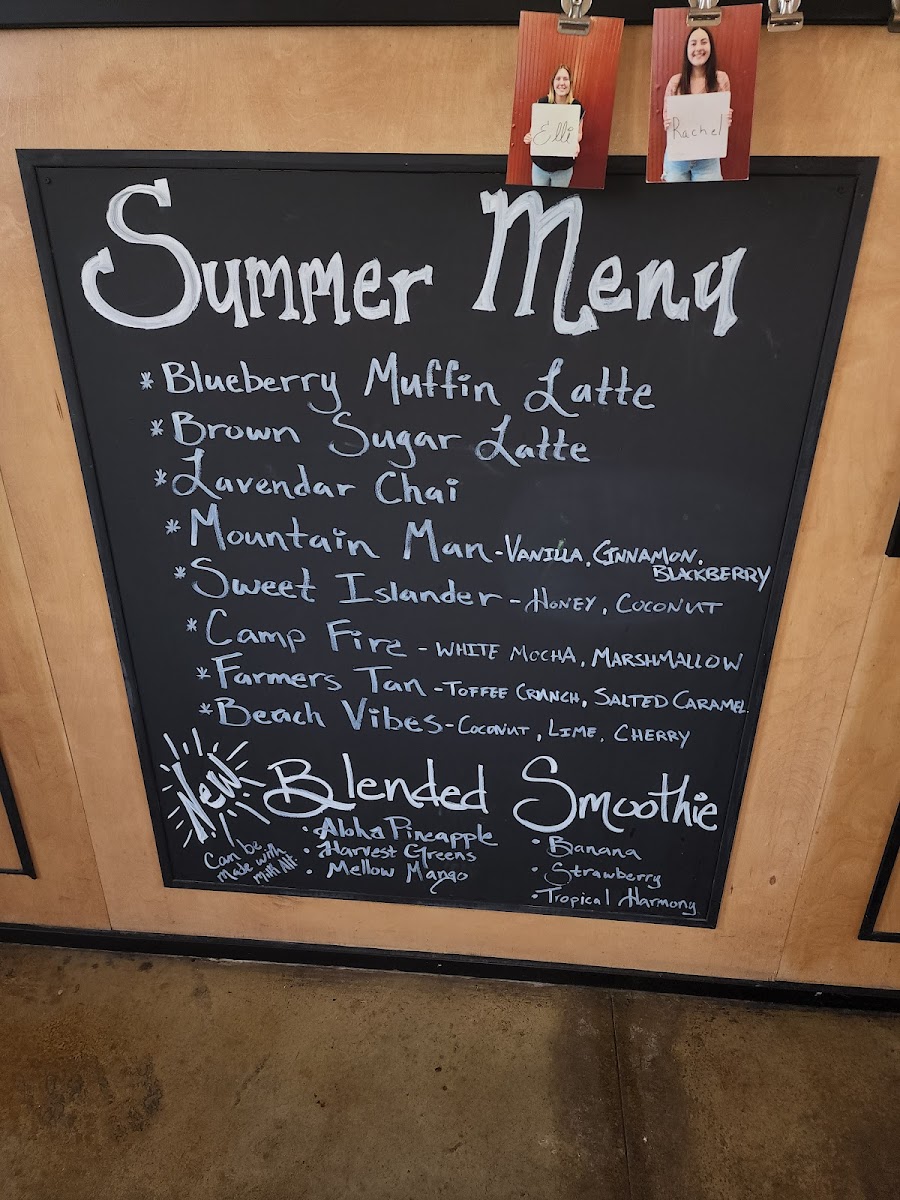 Elli
Rachel
Summer Menu
* Blueberry Muffin Latte
* Brown Sugar Latte
* Lavendar Chai
* Mountain Man - VANILLA, CINNAMON,
BLACKBERRY
* Sweet Islander - HONEY, COCONUT
* Camp Fire - WHITE MOCHA, MARSHMALLOW
* Farmers Tan - TOFFEE CRUNCH, SALTED CARAMEL
* Beach Vibes - COCONUT, LIME, CHERRY
New! Blended Smoothie
• Aloha Pineapple
• Harvest Greens
• Mellow Mango
• Banana
• Strawberry
• Tropical Harmony
Can be
made with
milk Alt.